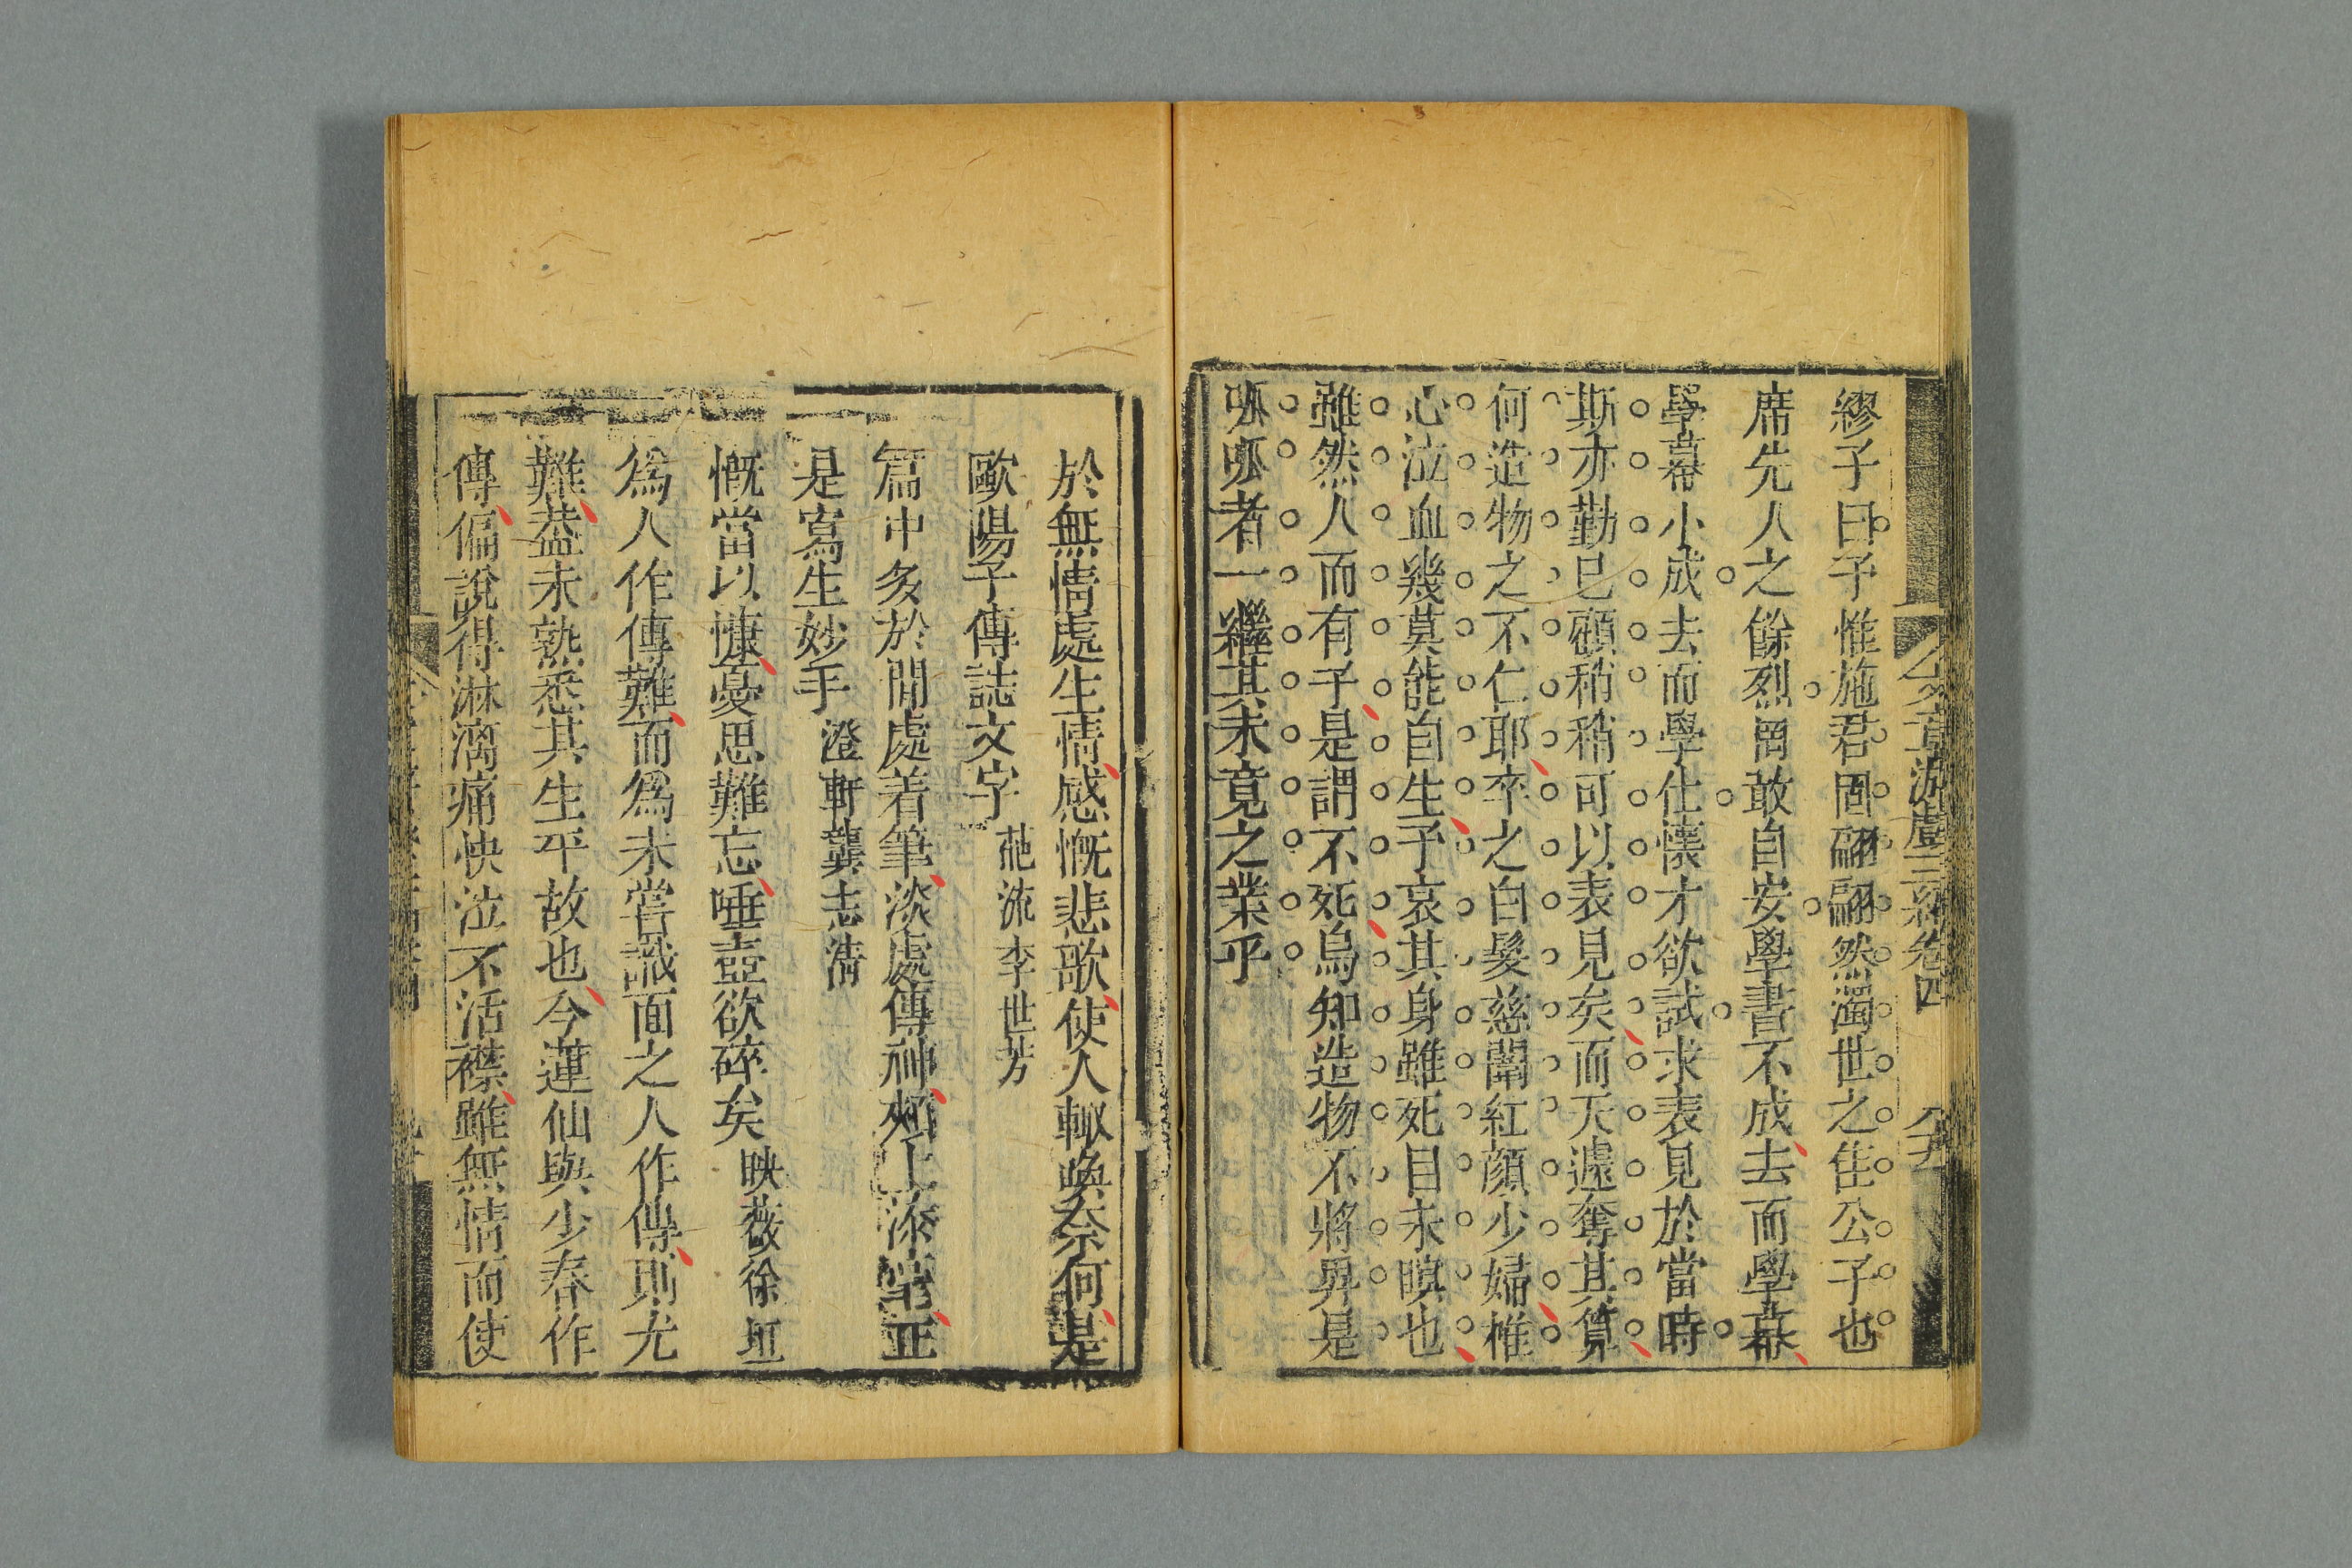 文章游戲三編卷四
繆子曰予惟施君固翩翩然濁世之佳公子也
席先人之餘烈罔敢自安學書不成去而學幕
學幕小成去而學仕懷才欲試求表見於當時
斯亦勤已顧稍稍可以表見矣而天遽奪其算
何造物之不仁耶卒之白髮慈闈紅顏少婦椎
心泣血幾莫能自生予哀其身雖死目未瞑也
雖然人而有子是謂不死烏知造物不將畀是
呱呱者一繼其未竟之業乎
於無情處生情感慨悲歌使人輒喚奈何是
歐陽子傳誌文字 李世芳
篇中多於閒處着筆淡處傳神頰上添毫正
是寫生妙手 澄軒龔志清
慨當以慷憂思難忘唾壺欲碎矣 映薇徐垣
為人作傳難而為未嘗識面之人作傳則尤
難葢未熟悉其生平故也今蓮仙與少春作
傳偏說得淋漓痛快泣不活襟雖無情而使